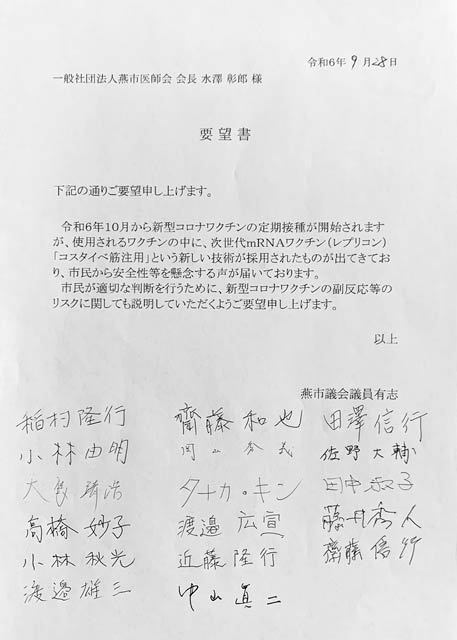 令和6年 9月28日
一般社団法人燕市医師会 会長 水澤 彰郎 様
要望書
下記の通りご要望申し上げます。
令和6年10月から新型コロナワクチンの定期接種が開始されます
が、使用されるワクチンの中に、次世代mRNAワクチン(レプリコン)
「コスタイベ筋注用」という新しい技術が採用されたものが出てきてお
り、市民から安全性等を懸念する声が届いております。
市民が適切な判断を行うために、新型コロナワクチンの副反応等の
リスクに関しても説明していただくようご要望申し上げます。
以上
燕市議会議員有志
稲村隆行 齋藤和也 田澤信行
小林由明 岡山秀義 佐野大輔
大 タナカ・キン 田中淑子
高橋妙子 渡邉広宣 藤井秀人
小林秋光 近藤隆行 齋藤信行
渡邉雄三 中山眞二